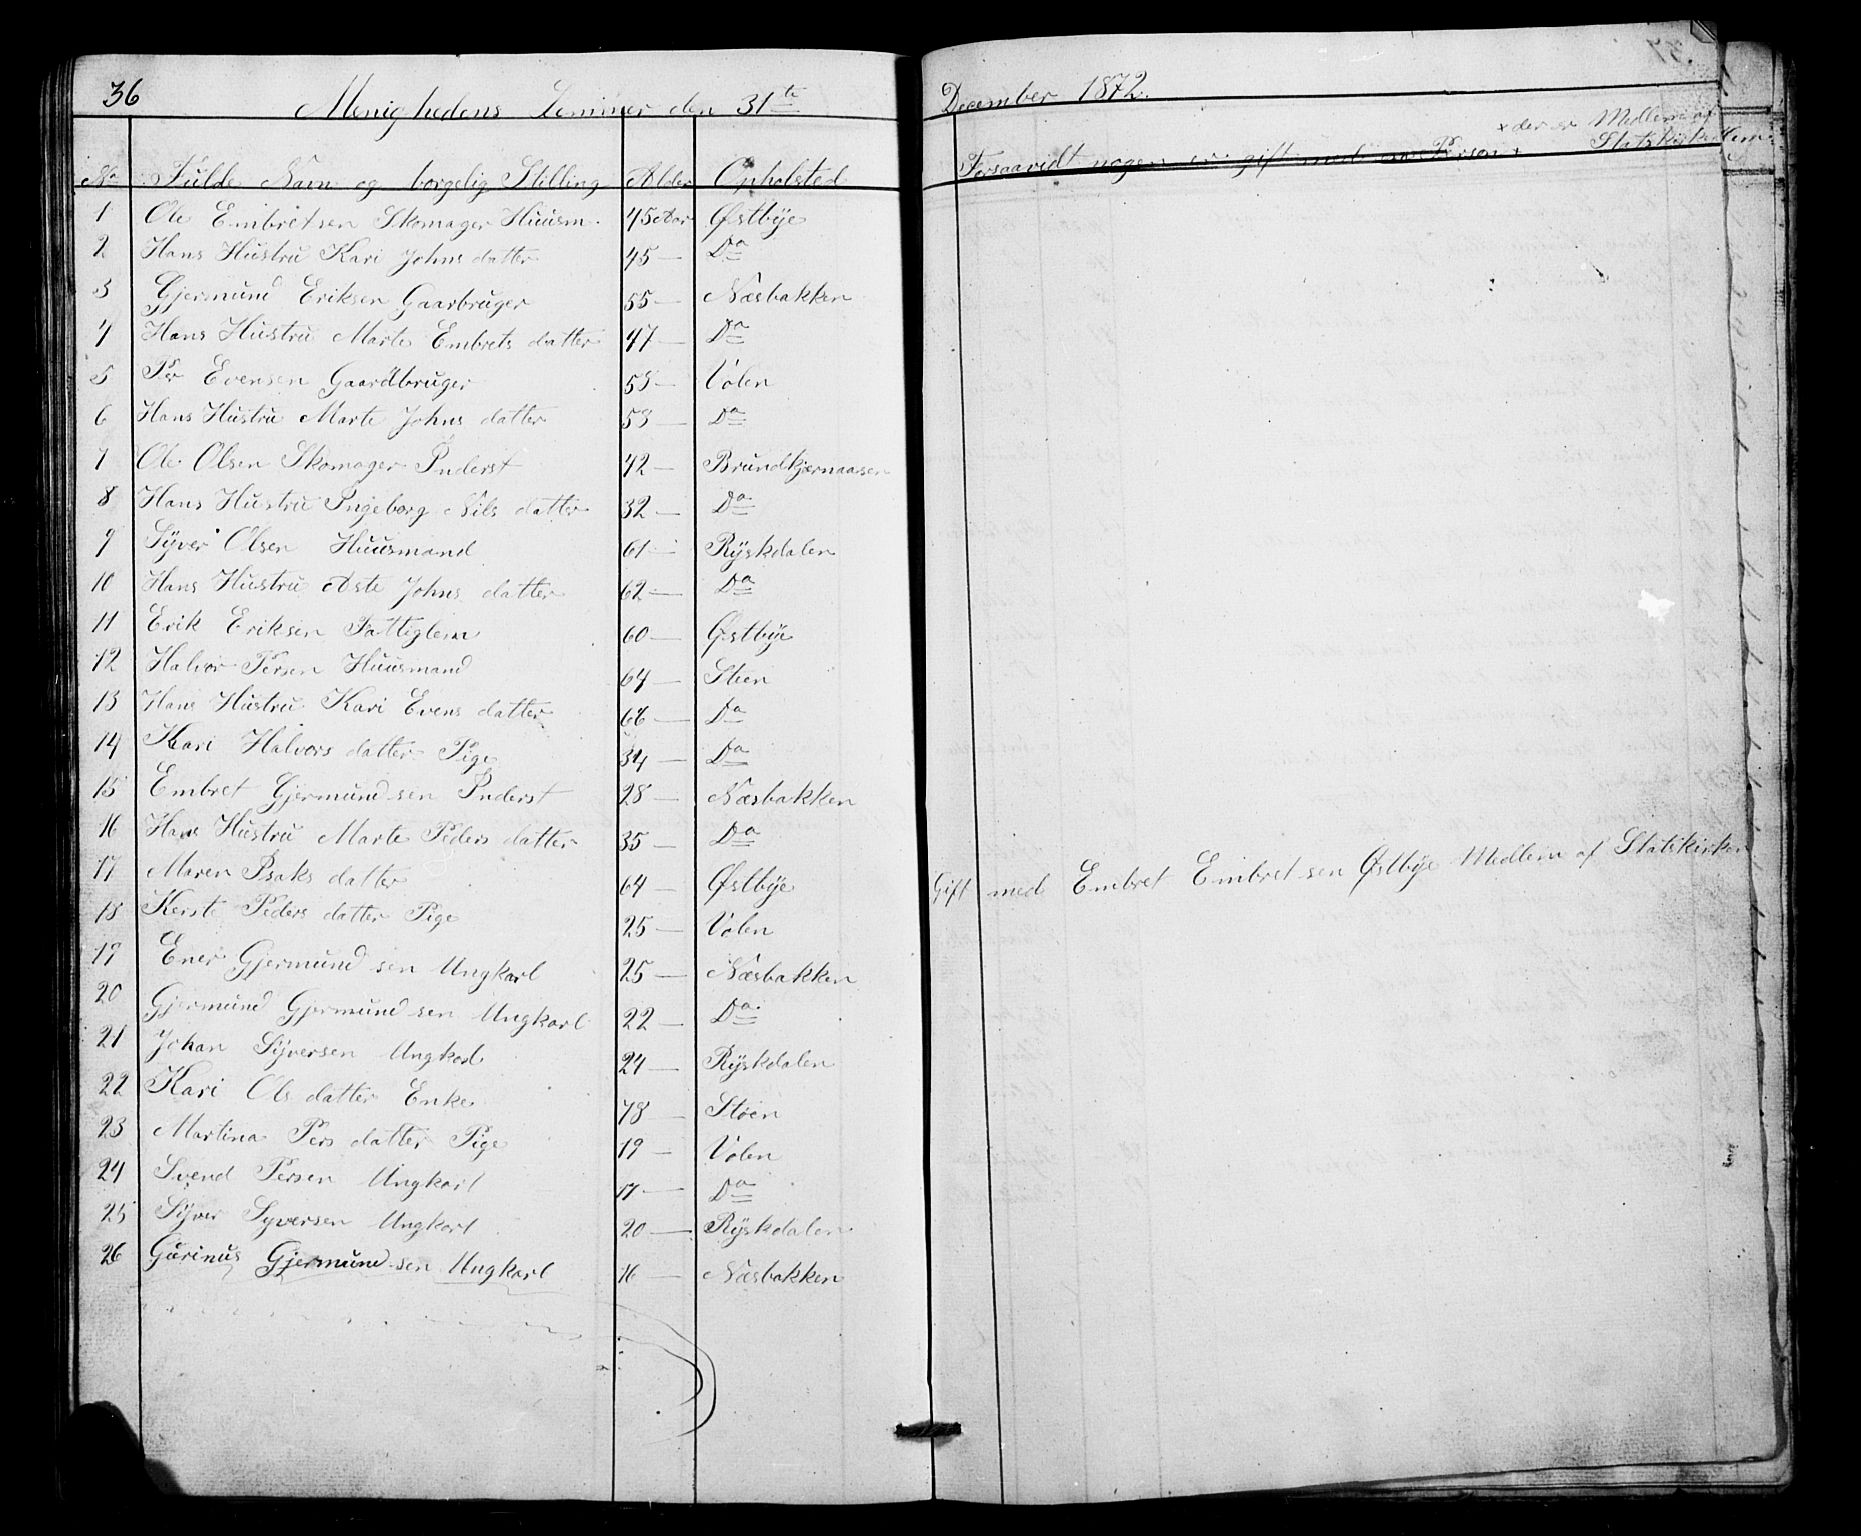 36
Menighedens Lemmer den 31te December 1872.
No Fulde Navn og borgelig Stilling Alder Opholsted Forsaavidt nogen er gift med en Person x
x der er Medlem af
Statskirken
1 Ole Embretsen Skomager Huusm. 45 Aar Østbye
2 Hans Hustru Kari Johns datter 45 — Do
3 Gjermund Eriksen Gaarbruger 55 — Næsbakken
4 Hans Hustru Marte Embrets datter 47 — Do
5 Per Evensen Gaardbruger 55 — Volen
6 Hans Hustru Marte Johns datter 53 — Do
7 Ole Olsen Skomager Inderst 42 — Brundkjærnaasen
8 Hans Hustru Ingeborg Nils datter 32 — Do
9 Syver Olsen Huusmand 61 — Ryskdalen
10 Hans Hustru Aste Johns datter 62 — Do
11 Erik Eriksen Fattiglem 60 — Østbye
12 Halvor Persen Huusmand 64 — Støen
13 Hans Hustru Kari Evens datter 66 — Do
14 Kari Halvors datter Pige 34 — Do
15 Embret Gjermund sen Inderst 28 — Næsbakken
16 Hans Hustru Marte Peders datter 35 — Do
17 Maren Isaks datter 64 — Østbye Gift med Embret Embret sen Østbye Medlem af Statskirken
18 Kerste Peders datter Pige 25 — Volen
19 Ener Gjermund sen Ungkarl 25 — Næsbakken
20 Gjermund Gjermund sen Ungkarl 22 — Do
21 Johan Syversen Ungkarl 24 — Ryskdalen
22 Kari Ols datter Enke 78 — Støen
23 Martina Pers datter Pige 19 — Volen
24 Svend Persen Ungkarl 17 — Do
25 Syver Syversen Ungkarl 20 — Ryskdalen
26 Gurinus Gjermund sen Ungkarl 16 — Næsbakken